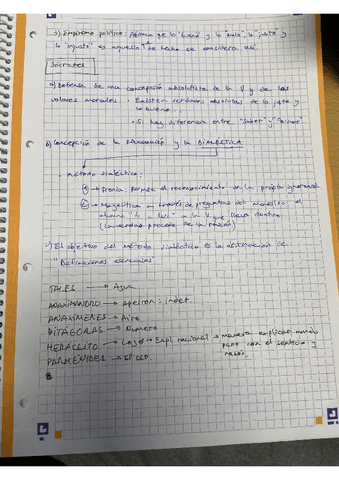 c) Empirismo político: Afirma que lo "bueno" y lo "malo", lo "justo" y
lo "injusto" es aquello que de hecho se considera así.
Sócrates
a) Defensa de una concepción absolutista de la V y de los
valores morales · Existen verdades absolutas de lo justo y
lo bueno.
· Si hay diferencia entre "saber" y "opinar"
b) Concepción de la educación y la DIALÉCTICA
· Método dialéctico:
→ Ironía permite el reconocimiento de la propia ignorancia
→ Mayéutica → a través de preguntas del maestro el
alumno "da a luz" a la V que lleva dentro
(la verdad procede de la razón)
c) El objetivo del método dialéctico es la de
"Definiciones esenciales"
TALES → Agua
ANAXIMANDRO → Apeiron: indet.
ANAXÍMENES → Aire
PITÁGORAS → Número
HERÁCLITO → Logos → Expl racional → manera explican mundo
pero con el sentido y
razón.
PARMÉNIDES → El ser.